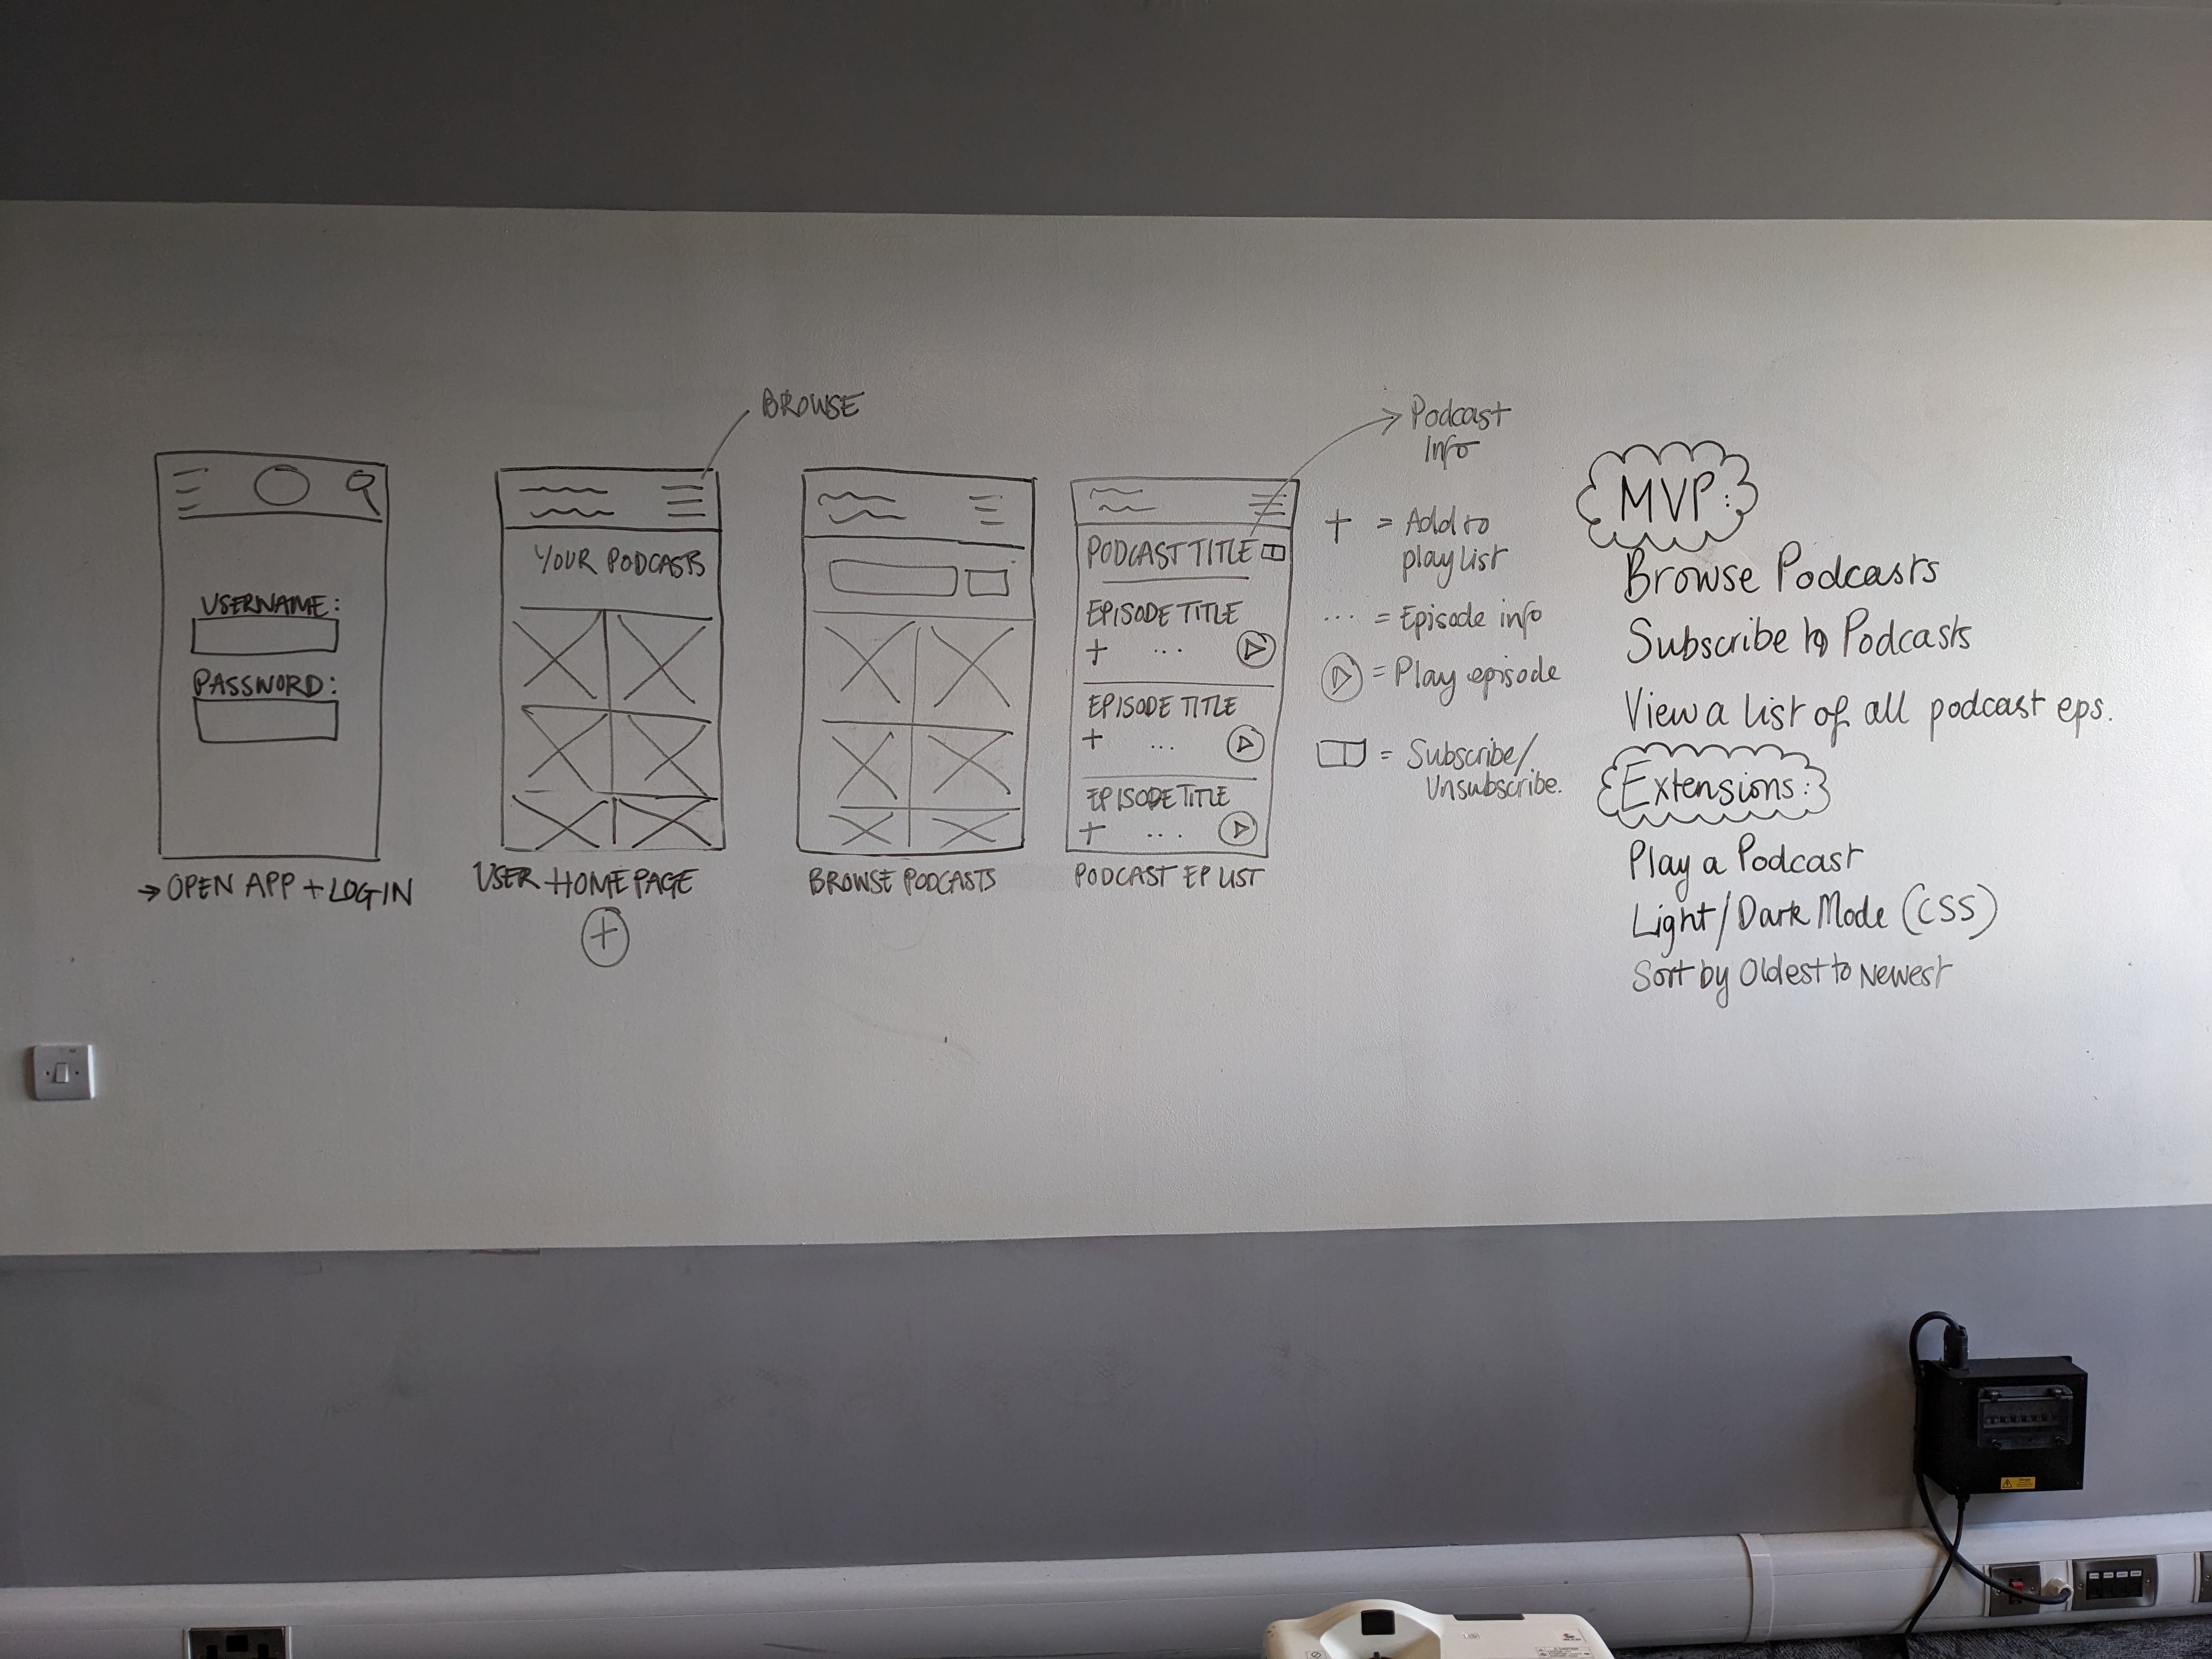 USERNAME:
PASSWORD:
→ OPEN APP + LOGIN
BROWSE
YOUR PODCASTS
USER HOMEPAGE
+
BROWSE PODCASTS
Podcast
Info
PODCAST TITLE
EPISODE TITLE
+ ...
EPISODE TITLE
+ ...
EPISODE TITLE
+ ...
PODCAST EP LIST
+ = Add to
playlist
... = Episode info
= Play episode
= Subscribe/
Unsubscribe.
MVP:
Browse Podcasts
Subscribe to Podcasts
View a list of all podcast eps.
Extensions:
Play a Podcast
Light/Dark Mode (CSS)
Sort by Oldest to Newest